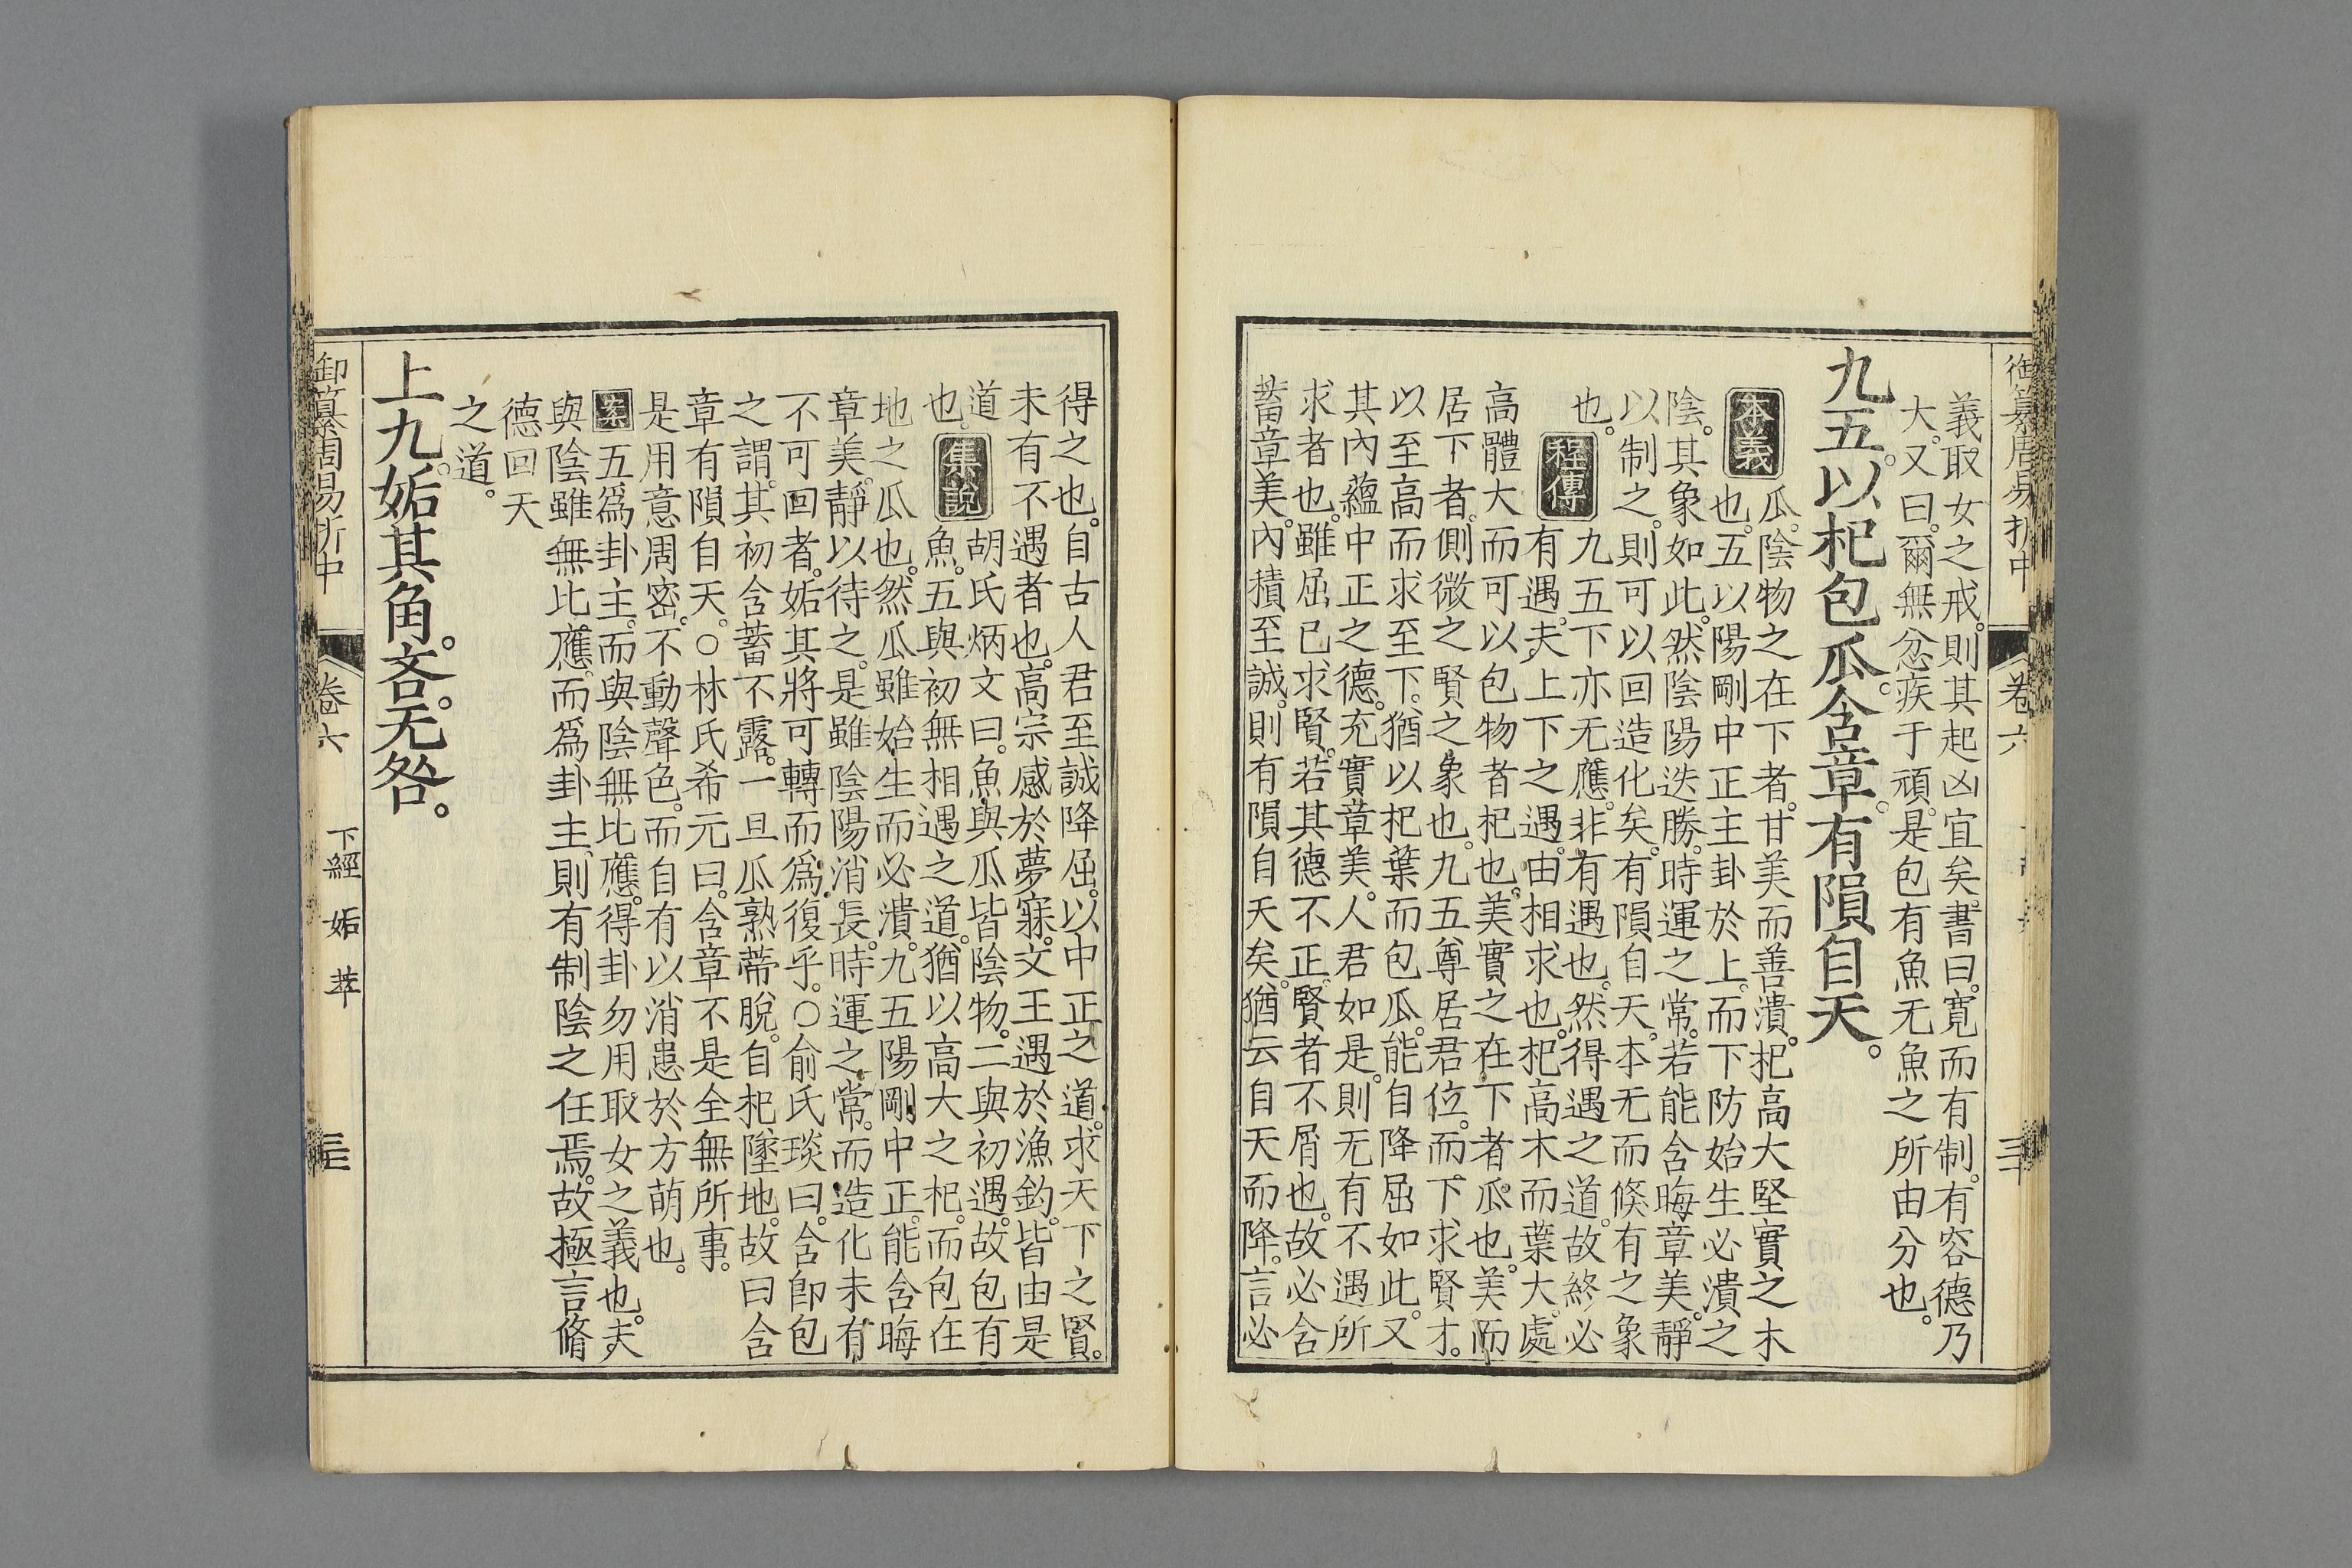 御纂周易折中 卷六
義取女之戒。則其起凶宜矣。書曰。寬而有制。有容德乃
大。又曰。爾無忿疾于頑。是包有魚无魚之所由分也。
九五。以杞包瓜。含章。有隕自天。
本義
瓜。陰物之在下者。甘美而善潰。杞高大堅實之木
也。五以陽剛中正主卦於上。而下防始生必潰之
陰。其象如此。然陰陽迭勝。時運之常。若能含晦章美。靜
以制之。則可以回造化矣。有隕自天。本无而倐有之象
也。程傳九五下亦无應。非有遇也。然得遇之道。故終必
有遇。夫上下之遇。由相求也。杞高木而葉大。處
高體大而可以包物者杞也。美實之在下者。瓜也。美而
居下者。側微之賢之象也。九五尊居君位。而下求賢才。
以至高而求至下。猶以杞葉而包瓜。能自降屈如此。又
其內蘊中正之德。充實章美。人君如是。則无有不遇所
求者也。雖屈己求賢。若其德不正。賢者不屑也。故必含
蓄章美。內積至誠。則有隕自天矣。猶云自天而降。言必
得之也。自古人君至誠降屈。以中正之道。求天下之賢。
未有不遇者也。高宗感於夢寐。文王遇於漁釣。皆由是
道
也。集說胡氏炳文曰。魚與瓜皆陰物。二與初遇。故包有
魚。五與初無相遇之道。猶以高大之杞。而包在
地之瓜也。然瓜雖始生而必潰。九五陽剛中正。能含晦
章美。靜以待之。是雖陰陽消長。時運之常。而造化未有
不可回者。姤其將可轉而爲復乎。○俞氏琰曰。含卽包
之謂。其初含蓄不露。一旦瓜熟蒂脫。自杞墜地。故曰含
章有隕自天。○林氏希元曰。含章不是全無所事。
是用意周密。不動聲色。而自有以消患於方萌也。
案五爲卦主。而與陰無比應。得卦勿用取女之義也。夫
與陰雖無比應。而爲卦主。則有制陰之任焉。故極言脩
德回天
之道。
上九。姤其角。吝。无咎。
御纂周易折中 卷六 下經 姤 萃